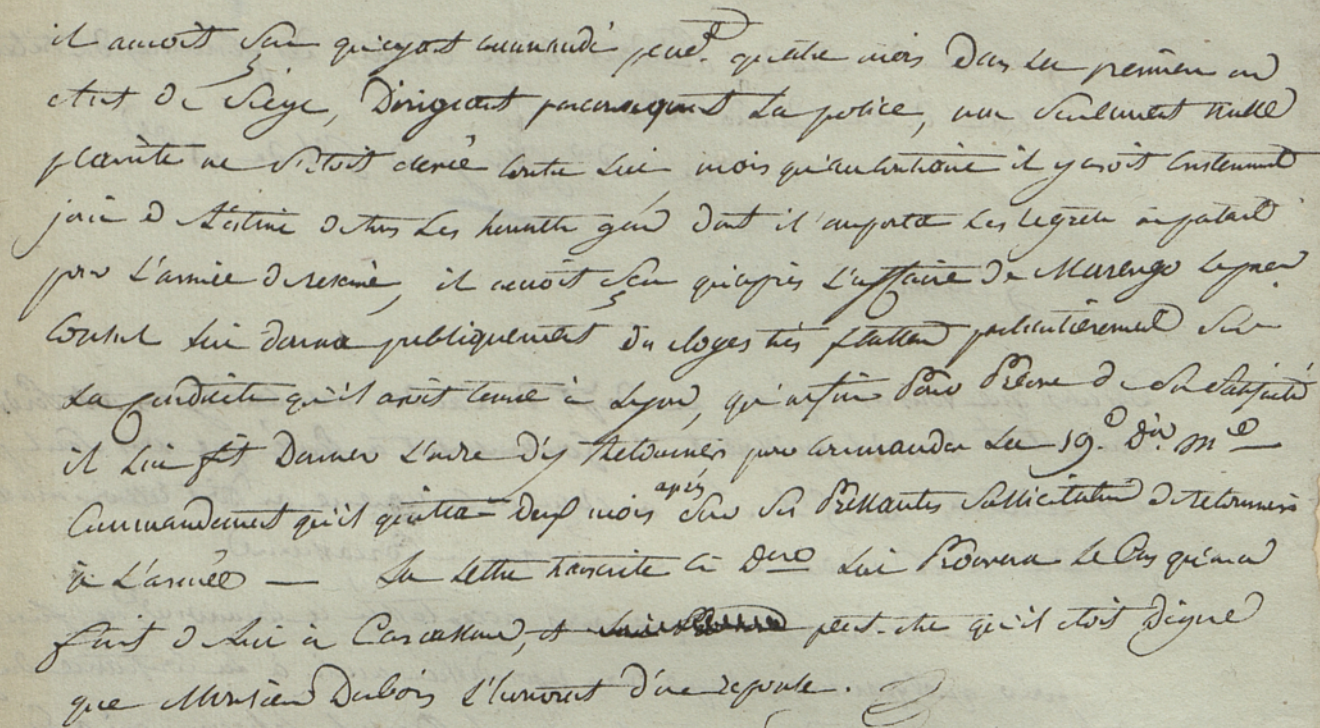 il auroit sçu qu'ayant commandé pend.t quatre mois dans Lyon première en
etat de siège, Dirigeant parconsequent La police, non seulement nulle
plainte ne s'étoit elevée contre lui mais qu'aucontraire il y avoit constamment
joui de L'estime de tous Les honnêtes gens dont il emporta Les regrets en partant
pour L'armée de reserve, il auroit sçu qu'après L'affaire de Marengo Le premier
Consul lui donna publiquement des eloges très flatteurs particulièrement sur
La conduite qu'il avoit tenue à Lyon, qu'enfin Pour Preuve de sa satisfaction
il Lui fit Donner L'ordre d'y Retourner pour commander La 19.e D.on m.re
Commandement qu'il quitta deux mois après sur ses Pressantes Sollicitations de retourner
à L'armée — La Lettre transcrite ci D.ere Lui Prouvera Le Cas qu'on a
fait de lui à Carcassonne, et peut-etre qu'il étoit digne
que Monsieur Dubois L'honorat d'une reponse.